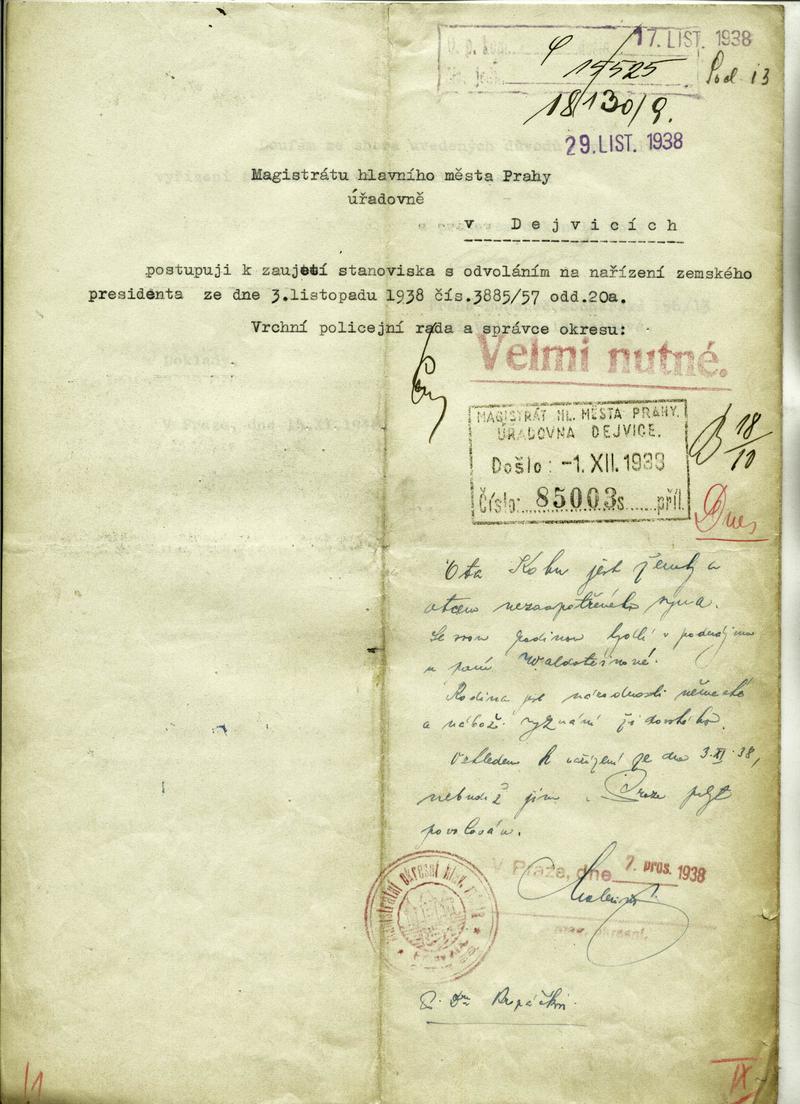 17. LIST. 1938
15525
Pod 13
18130/9.
29. LIST. 1938
Magistrátu hlavního města Prahy
úřadovně
v Dejvicích
postupuji k zaujetí stanoviska s odvoláním na nařízení zemského
presidenta ze dne 3.listopadu 1938 čís.3885/57 odd.20a.
Vrchní policejní rada a správce okresu:
Velmi nutné.
MAGISTRÁT HL. MĚSTA PRAHY.
ÚŘADOVNA DEJVICE.
Došlo: -1. XII. 1938
Číslo: 85003 s příl.
18/10
Dnes
Ota Kohn jest ženatý a
otcem nezaopatřeného syna.
Se svou rodinou bydlí v podnájmu
u paní Waldsteinové.
Rodina jest národnosti německé
a nábož. vyznání židovského.
Vzhledem k nařízení ze dne 3.XI.38,
nebudiž jim v Praze pobyt
povolován.
V Praze, dne 7. pros. 1938
IX